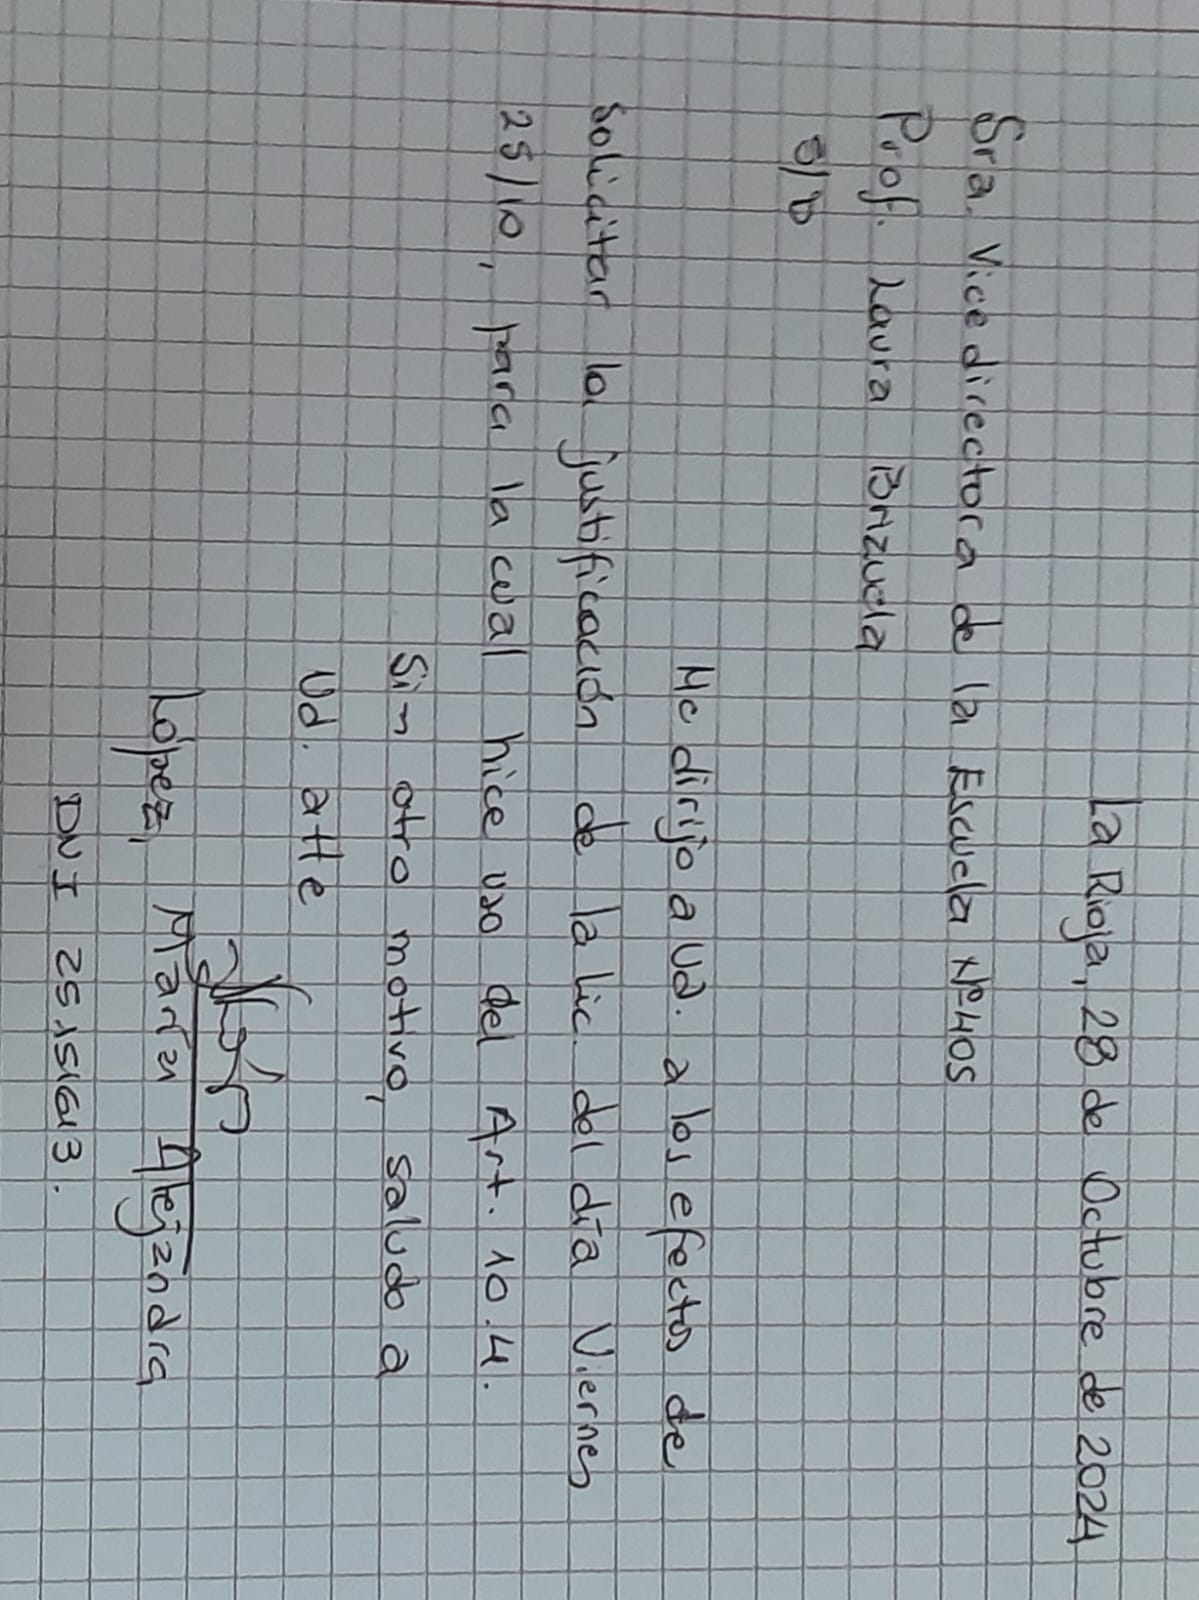 La Rioja, 28 de Octubre de 2024
Sra. Vicedirectora de la Escuela Nº 405
Prof. Laura Brizuela
S/D
Me dirijo a Ud. a los efectos de
solicitar la justificación de la lic. del día Viernes
25/10, para la cual hice uso del Art. 10.4.
Sin otro motivo, saludo a
Ud. atte
López, María Alejandra
DNI